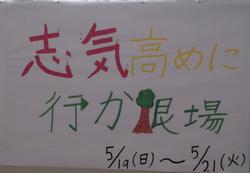 志気高めに
行か根場
5/19(日)～5/21(火)